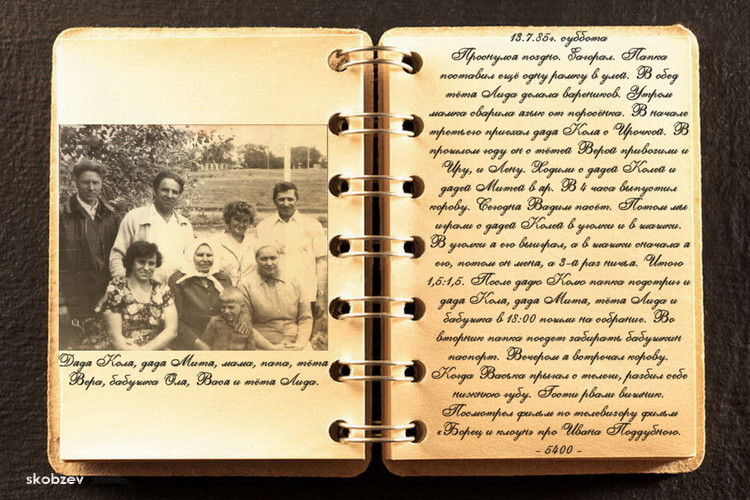 Дядя Коля, дядя Митя, мама, папа, тётя
Вера, бабушка Оля, Вася и тётя Лида.
13.7.85г. суббота
Проснулся поздно. Загорал. Папка
поставил ещё одну рамку в улей. В обед
тётя Лида делала вареников. Утром
мамка сварила язык от поросёнка. В начале
третьего приехал дядя Коля с Ирочкой. В
прошлом году он с тётей Верой привозили и
Иру, и Лену. Ходили с дядей Колей и
дядей Митей в яр. В 4 часа выпустил
корову. Сегодня Вадим пасёт. Потом мы
играли с дядей Колей в уголки и в шашки.
В уголки я его выиграл, а в шашки сначала я
его, потом он меня, а 3-й раз ничья. Итого
1,5:1,5. После дядю Колю папка подстриг и
дядя Коля, дядя Митя, тётя Лида и
бабушка в 18:00 пошли на собрание. Во
вторник папка поедет забирать бабушкин
паспорт. Вечером я встречал корову.
Когда Васька прыгал с телеги, разбил себе
нижнюю губу. Гости рвали вишник.
Посмотрел фильм по телевизору фильм
«Борец и клоун» про Ивана Поддубного.
- 5400 -
skobzev